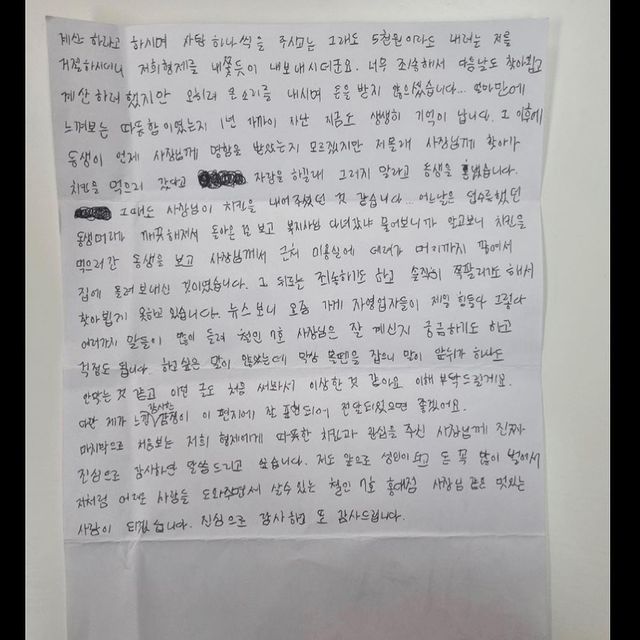 계산 하라고 하시며 사탕 하나씩을 주시고는 그래도 5천원이라도 내려는 저를
거절하시더니 저희형제를 내쫓듯이 내보내시더군요. 너무 죄송해서 다음날도 찾아뵙고
계산 하려 했지만 오히려 큰 소리를 내시며 돈을 받지 않으셨습니다... 얼마만에
느껴보는 따뜻함이였는지 1년 가까이 지난 지금도 생생히 기억이 납니다. 그 이후에
동생이 언제 사장님께 명함을 받았는지 모르겠지만 저몰래 사장님께 찾아가
치킨을 먹으러 갔다고 자랑을 하길래 그러지 말라고 동생을 습니다.
그때도 사장님이 치킨을 내어주셨던 것 같습니다... 어느날은 덥수룩했던
동생머리가 깨끗해져서 돌아온 걸 보고 복지사님 다녀갔냐 물어보니까 알고보니 치킨을
먹으러간 동생을 보고 사장님께서 근처 미용실에 데려가 머리까지 깎여서
집에 돌려보내신 것이였습니다. 그 뒤로는 죄송하기도 하고 솔직히 쪽팔리기도 해서
찾아뵙지 못하고 있습니다. 뉴스보니 요즘 가게 자영업자들이 제일 힘들다 그렇다
여러가지 말들이 많이 들려 철인 7호 사장님은 잘 계신지 궁금하기도 하고
걱정도 됩니다. 하고싶은 말이 많았는데 막상 볼펜을 잡으니 말이 앞뒤가 하나도
안맞는 것 같고 이런 글도 처음 써봐서 이상한 것 같아요 이해 부탁드릴게요.
다만 제가 느낀 감사한 감정이 이 편지에 잘 표현되어 전달되었으면 좋겠어요.
마지막으로 처음보는 저희 형제에게 따뜻한 치킨과 관심을 주신 사장님께 진짜
진심으로 감사하단 말씀 드리고 싶습니다. 저도 앞으로 성인이 되고 돈 꼭 많이 벌어서
저처럼 어려운 사람들 도와주면서 살수있는 철인 7호 홍대점 사장님 같은 멋있는
사람이 되겠습니다. 진심으로 감사하고 또 감사드립니다.